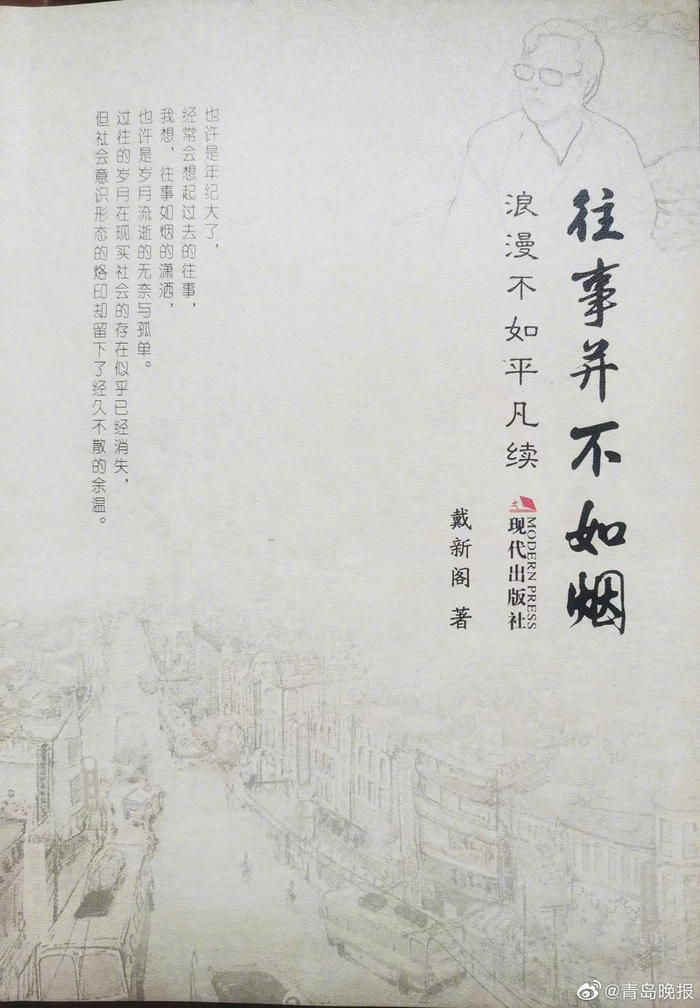 往事并不如烟
浪漫不如平凡续
现代出版社
MODERN PRESS
戴新阁 著
也许是年纪大了，
经常会想起过去的往事，
我想，往事如烟的潇洒，
也许是岁月流逝的无奈与孤单。
过往的岁月在现实社会的存在似乎已经消失，
但社会意识形态的烙印却留下了经久不散的余温。
@青岛晚报